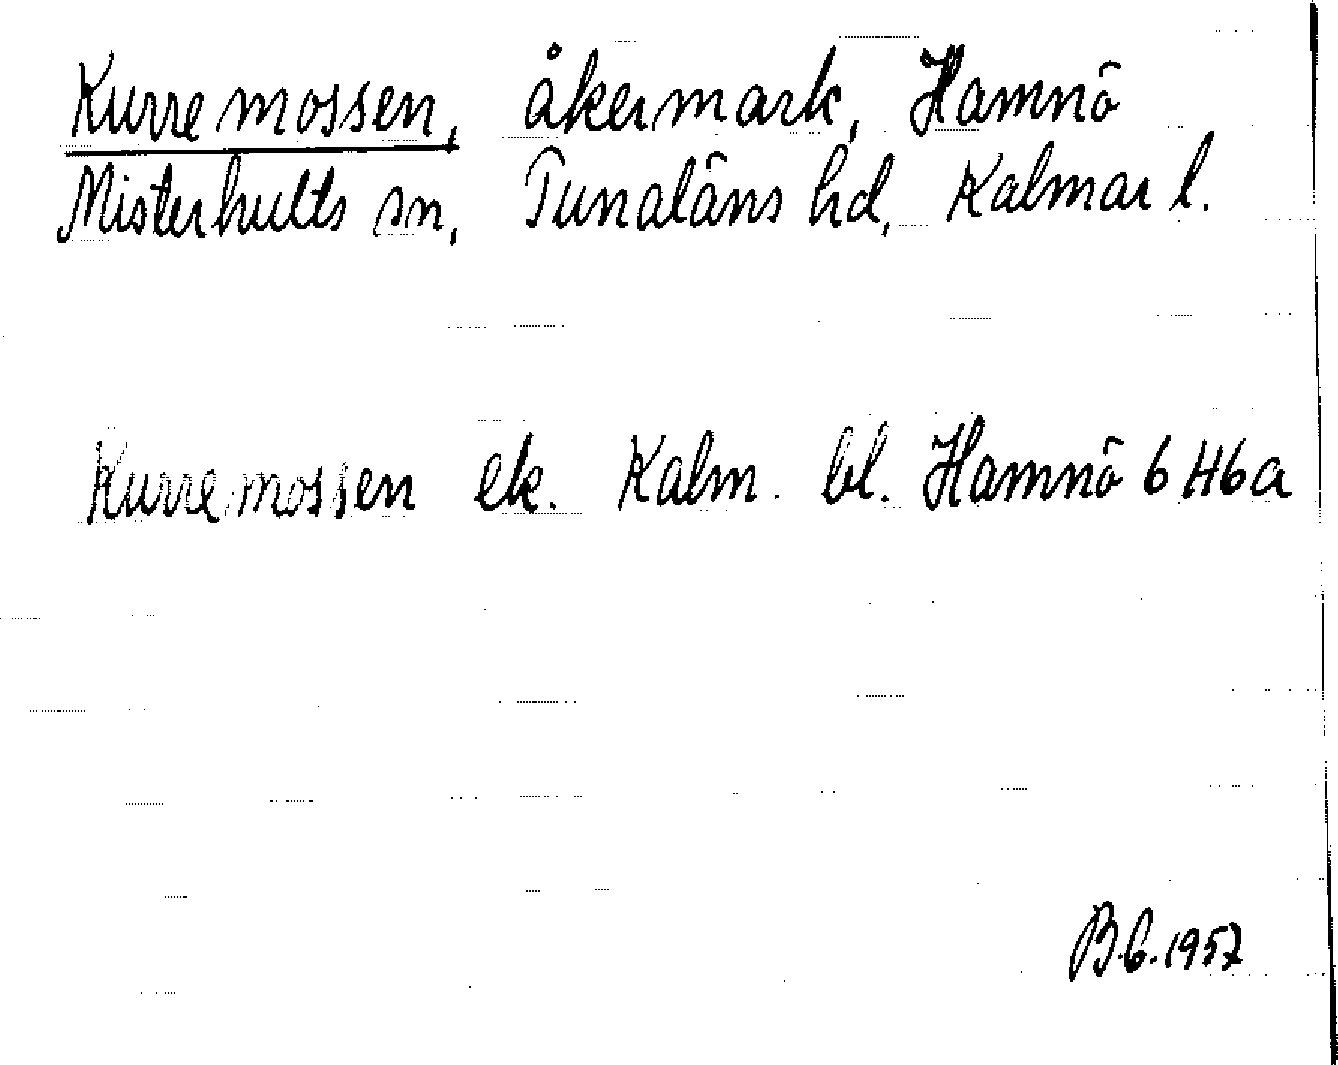 Kurremossen, åkermark, Hamnö
Misterhults sn, Tunaläns hd, Kalmar l.
Kurremossen ek. Kalm. bl. Hamnö 6 H6a
B.G. 1957